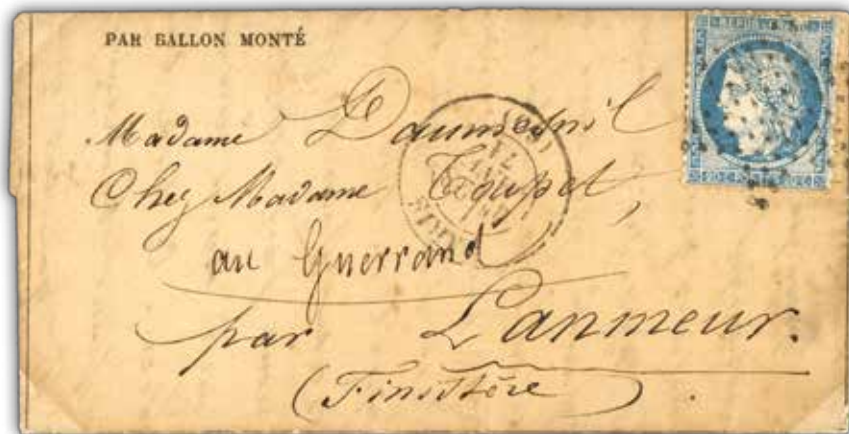 PAR BALLON MONTÉ
Madame Daumesnil
Chez Madame Toupet,
au Guerrand
par Lanmeur.
(Finistère)